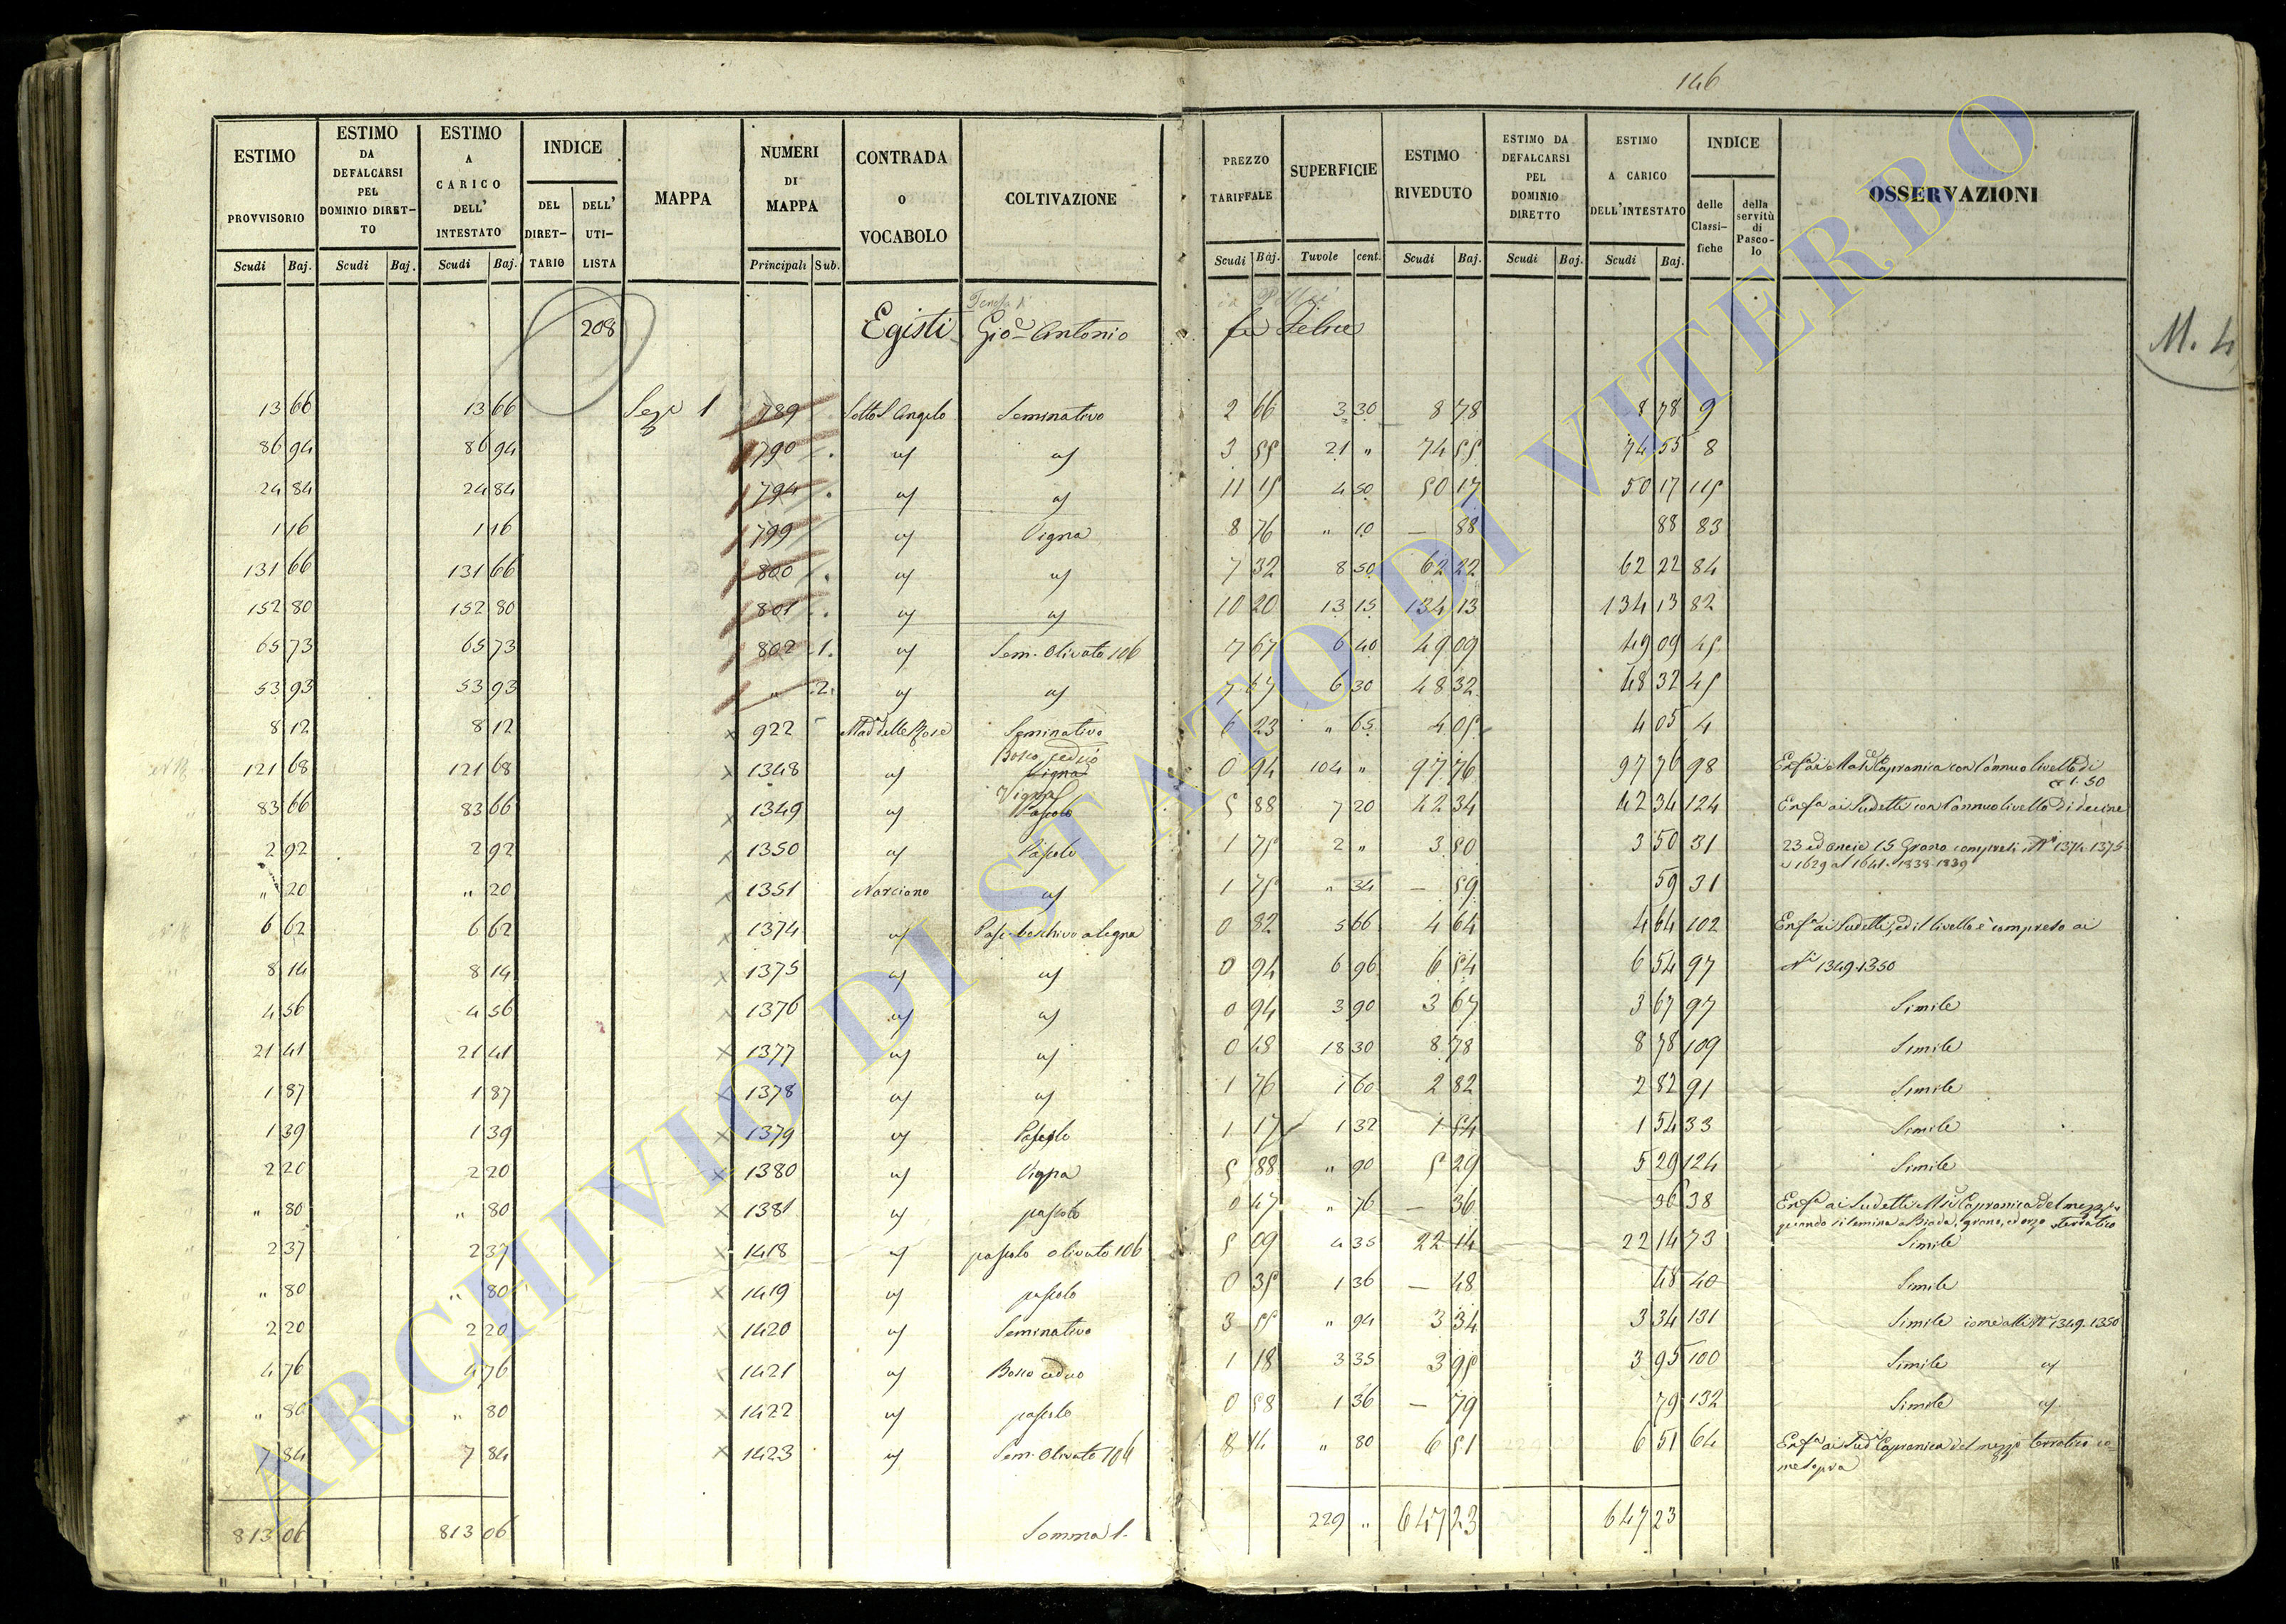 146
ESTIMO PROVVISORIO Scudi Baj.
ESTIMO DA DEFALCARSI PEL DOMINIO DIRET-TO Scudi Baj.
ESTIMO A CARICO DELL' INTESTATO Scudi Baj.
INDICE DEL DIRET-TARIO DELL' UTI-LISTA
MAPPA
NUMERI DI MAPPA Principali Sub.
CONTRADA o VOCABOLO
COLTIVAZIONE
PREZZO TARIFFALE Scudi Baj.
SUPERFICIE Tavole cent.
ESTIMO RIVEDUTO Scudi Baj.
ESTIMO DA DEFALCARSI PEL DOMINIO DIRETTO Scudi Baj.
ESTIMO A CARICO DELL'INTESTATO Scudi Baj.
INDICE delle Classi-fiche della servitù di Pasco-lo
OSSERVAZIONI
208 Egisti Gio. Antonio fu Felice
M. 4
13 66 13 66 Sez. 1 789 Sotto S. Angelo Seminativo 2 66 3 30 8 78 8 78 9
86 94 86 94 790 " " 3 55 21 " 74 55 74 55 8
24 84 24 84 794 " " 11 15 4 50 50 17 50 17 115
1 16 1 16 799 " Vigna 8 76 " 10 — 88 88 83
131 66 131 66 800 " " 7 32 8 50 62 22 62 22 84
152 80 152 80 801 " " 10 20 13 15 134 13 134 13 82
65 73 65 73 802 1. " Sem. Olivato 106 7 67 6 40 49 09 49 09 45
53 93 53 93 " 2. " " 7 67 6 30 48 32 48 32 45
8 12 8 12 x 922 Mad. delle Rose Seminativo 6 23 " 65 4 05 4 05 4
121 68 121 68 x 1348 " Bosco ceduo Vigna 0 94 104 " 97 76 97 76 98 Enfa ai Capranica con l'annuo livello di 1.50
83 66 83 66 x 1349 " Vigna Pascolo 5 88 7 20 42 34 42 34 124 Enfa ai Sudetti con l'annuo livello di decine
2 92 2 92 x 1350 " Pascolo 1 75 2 " 3 50 3 50 31 23 ed oncie 15 Grano compresi i Ni 1374. 1375
1629 al 1641. 1838. 1839
" 20 " 20 x 1351 Narciano " 1 75 " 34 — 59 59 31
6 62 6 62 x 1374 " Pasc. boschivo a legna 0 82 5 66 4 64 4 64 102 Enfa ai Sudetti, ed il livello è compreso ai
8 14 8 14 x 1375 " " 0 94 6 96 6 54 6 54 97 Ni 1349. 1350
4 56 4 56 x 1376 " " 0 94 3 90 3 67 3 67 97 Simile
21 41 21 41 x 1377 " " 0 48 18 30 8 78 8 78 109 Simile
1 87 1 87 x 1378 " " 1 76 1 60 2 82 2 82 91 Simile
1 39 1 39 x 1379 " Pascolo 1 17 1 32 1 54 1 54 33 Simile
2 20 2 20 x 1380 " Vigna 5 88 " 90 5 29 5 29 124 Simile
" 80 " 80 x 1381 " pascolo 0 47 " 76 — 36 36 38 Enfa ai Sudetti Capranica del mezzo
quando si semina a Biada, grano, ed orzo terratico
2 37 2 37 x 1418 " pascolo olivato 106 5 09 4 35 22 14 22 14 73 Simile
" 80 " 80 x 1419 " pascolo 0 35 1 36 — 48 48 40 Simile
2 20 2 20 x 1420 " Seminativo 3 55 " 94 3 34 3 34 131 Simile come alli Ni 1349. 1350
4 76 4 76 x 1421 " Bosco ceduo 1 18 3 35 3 95 3 95 100 Simile "
" 80 " 80 x 1422 " pascolo 0 58 1 36 — 79 79 132 Simile "
7 84 7 84 x 1423 " Sem. Olivato 106 8 14 " 80 6 51 6 51 64 Enfa ai Sud. Capranica del mezzo terratico co-
me sopra
813 06 813 06 Somma 229 " 647 23 647 23
ARCHIVIO DI STATO DI VITERBO